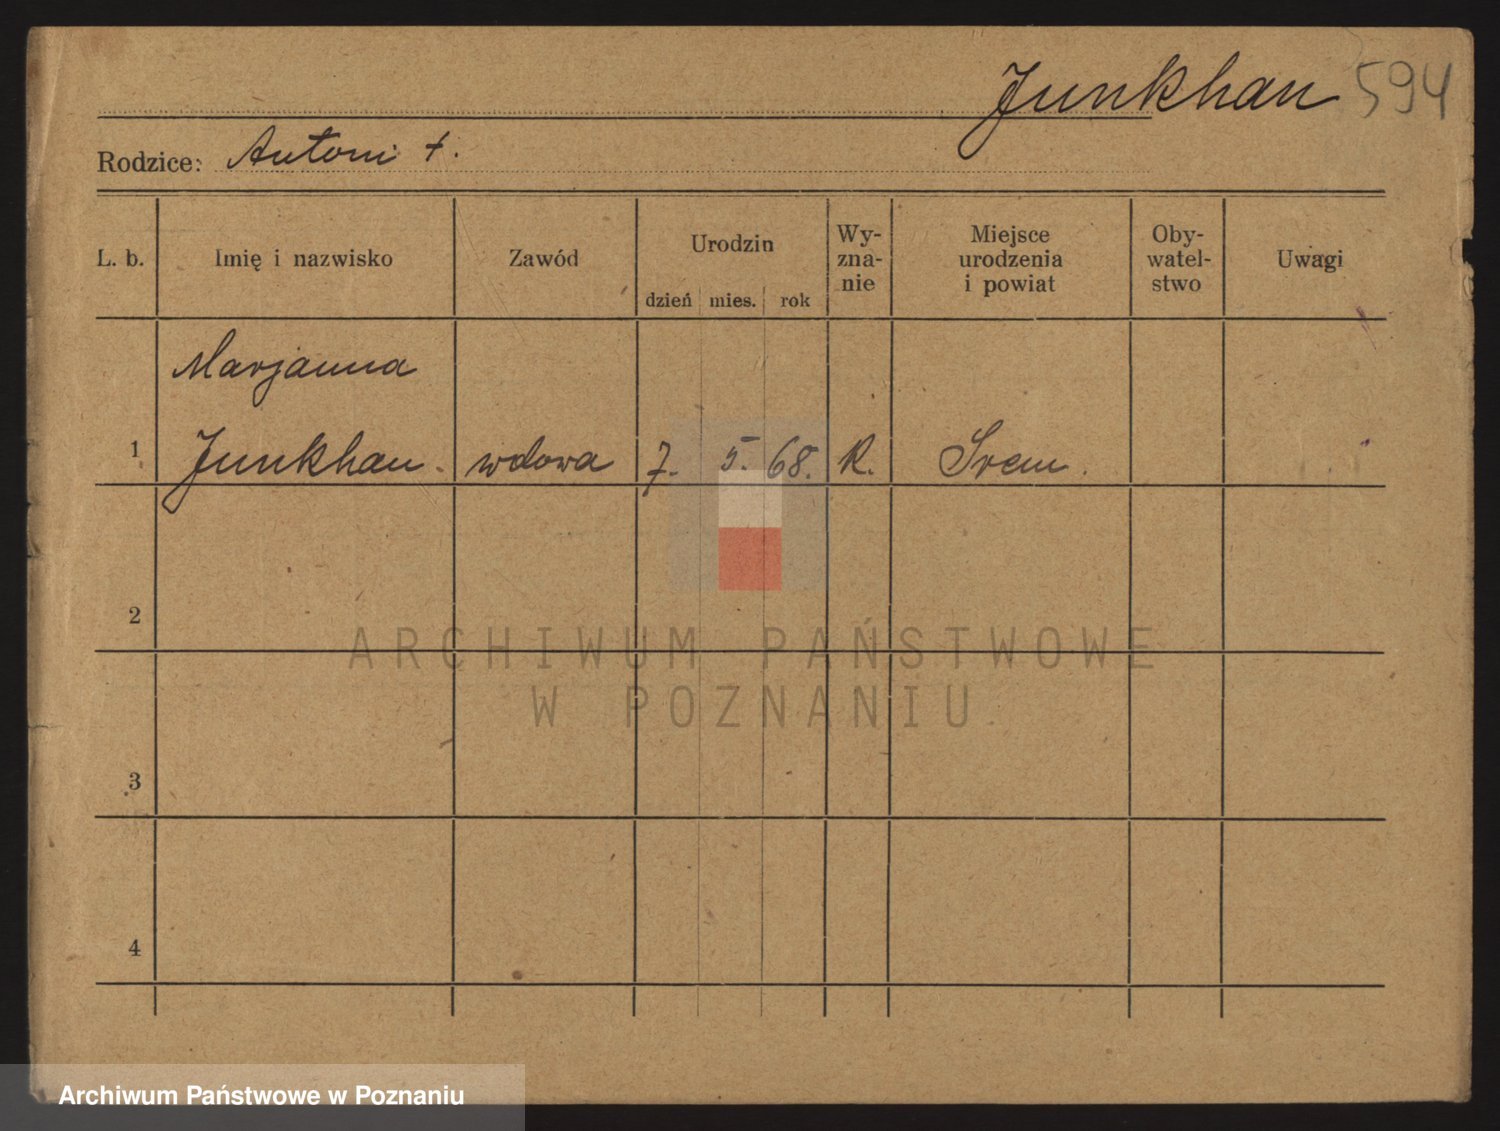 Junkhan 594
Rodzice: Antoni †.
L. b. Imię i nazwisko Zawód Urodzin dzień mies. rok Wy-zna-nie Miejsce urodzenia i powiat Oby-watel-stwo Uwagi
Marjanna
1 Junkhan. wdowa 7. 5. 68. R. Srem.
2
3
4
ARCHIWUM PAŃSTWOWE
W POZNANIU
Archiwum Państwowe w Poznaniu